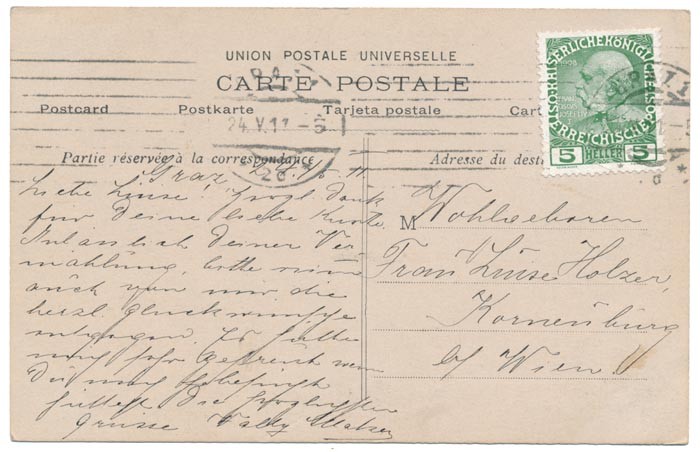 UNION POSTALE UNIVERSELLE
CARTE POSTALE
Postcard Postkarte Tarjeta postale Cart
Partie réservée à la correspondance
Adresse du dest
KAISERLICHE KÖNIGL
OESTERREICHISCHE
5 HELLER 5
GRAZ
24.V.11 - 6
Graz
Liebe Luise! Vielen Dank
für Deine liebe Karte.
Anlässlich Deiner Ver
mählung, bitte nimm
auch von mir die
herzl. Glückwünsche
entgegen. Es hätte
mich sehr gefreut wenn
Du mich
hättest. Die herzlichsten
Grüsse Vally
M Wohlgeboren
Frau Luise Holzer,
Korneuburg
b/ Wien.